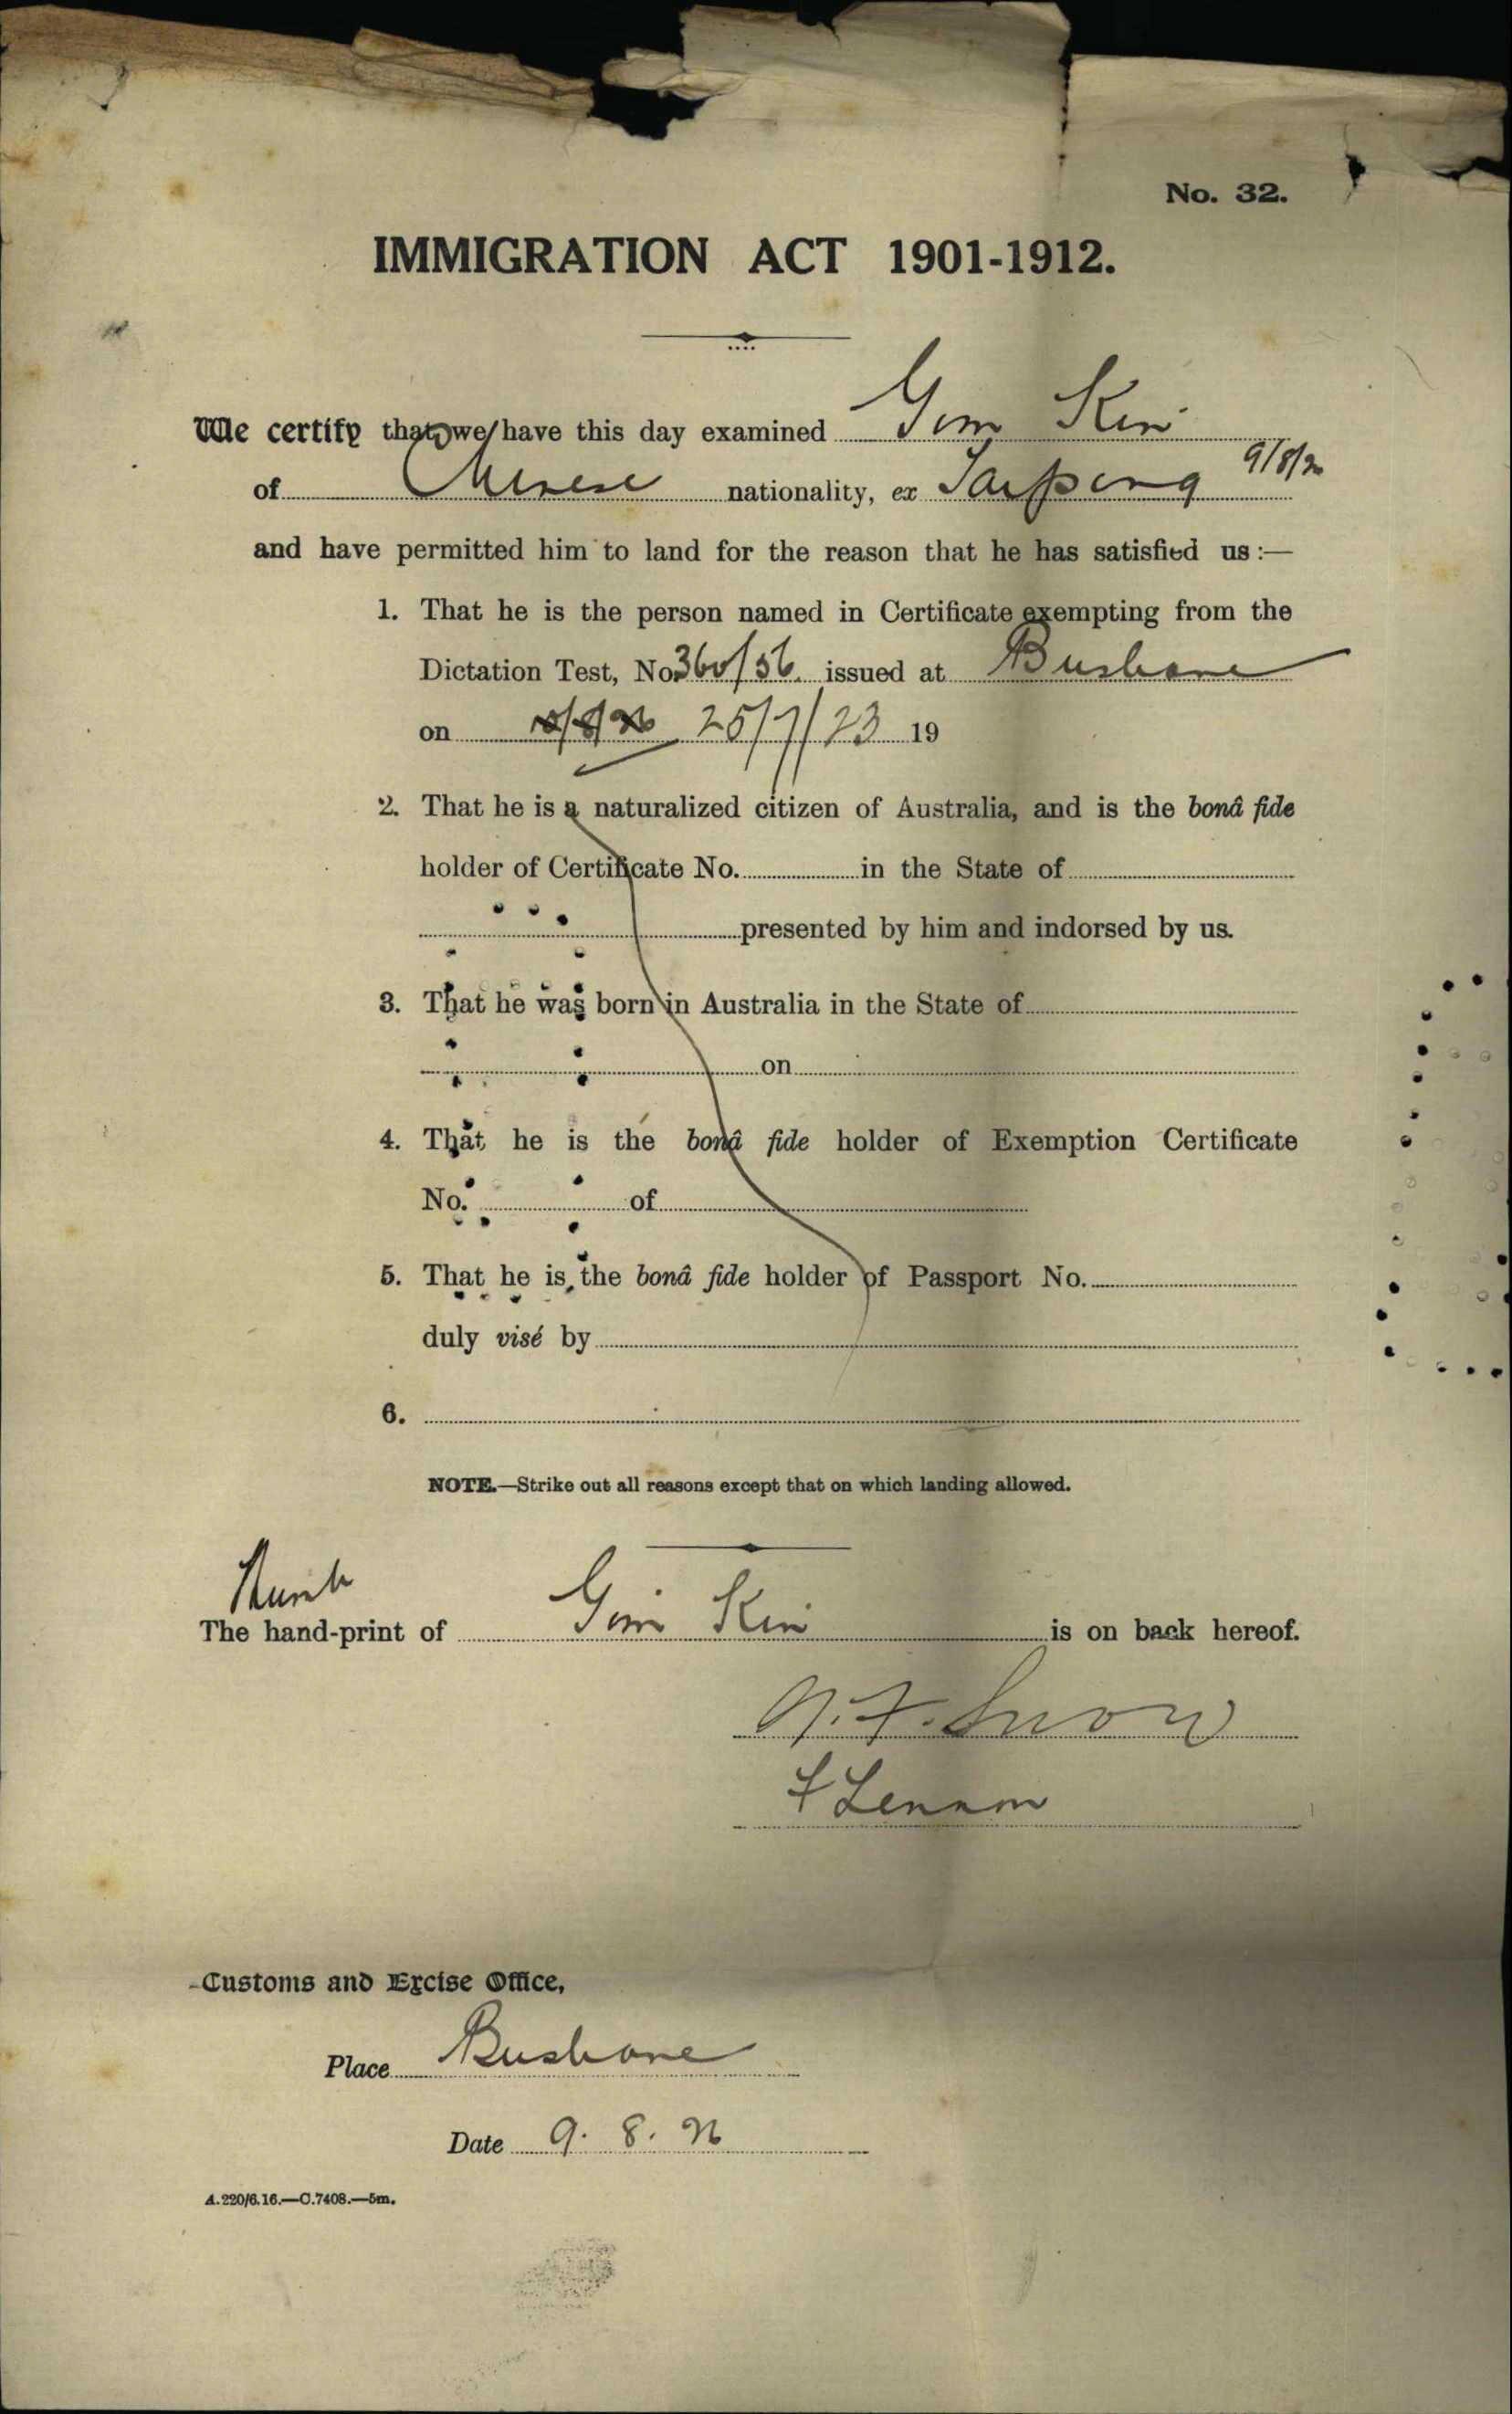 No. 32.
IMMIGRATION ACT 1901-1912.
We certify that we have this day examined Gim Kin
of Chinese nationality, ex Taiping 9/8/26
and have permitted him to land for the reason that he has satisfied us :—
1. That he is the person named in Certificate exempting from the
Dictation Test, No. 360/56. issued at Brisbane
on 25/7/23 19
2. That he is a naturalized citizen of Australia, and is the bonâ fide
holder of Certificate No. in the State of
presented by him and indorsed by us.
3. That he was born in Australia in the State of
on
4. That he is the bonâ fide holder of Exemption Certificate
No. of
5. That he is the bonâ fide holder of Passport No.
duly visé by
6.
NOTE.—Strike out all reasons except that on which landing allowed.
Thumb
The hand-print of Gim Kin is on back hereof.
Snow
F Lennon
Customs and Excise Office,
Place Brisbane
Date 9. 8. 26
A.220/6.16.—C.7408.—5m.